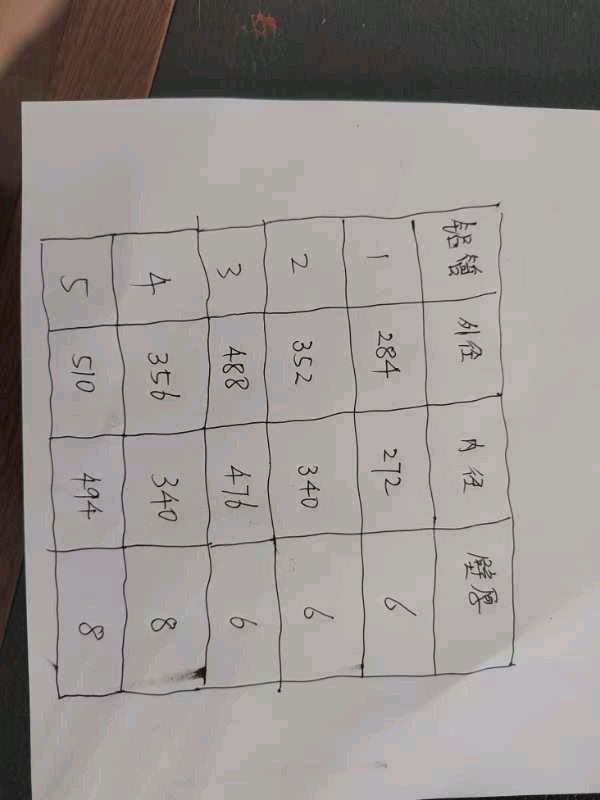 铝管 外径 内径 壁厚
1 284 272 6
2 352 340 6
3 488 476 6
4 356 340 8
5 510 494 8